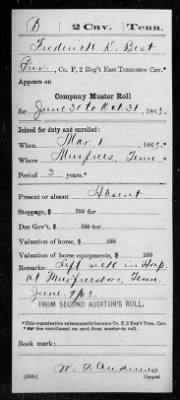 B 2 Cav. Tenn.
Frederick K. Best
Priv., Co. F, 2 Reg't East Tennessee Cav.*
Appears on
Company Muster Roll
for June 31 to Oct. 31, 1863.
Joined for duty and enrolled:
When Mar. 1, 1863.
Where Murfrees, Tenn.
Period 3 years.*
Present or absent Absent
Stoppage, $ 100 for
Due Gov't, $ 100 for
Valuation of horse, $ 100
Valuation of horse equipments, $ 100
Remarks: Left sick in Hosp.
at Murfreesboro, Tenn.
June 9/63.
FROM SECOND AUDITOR'S ROLL.
*This organization subsequently became Co. F, 2 Reg't Tenn. Cav.
Book mark:
Copyist.